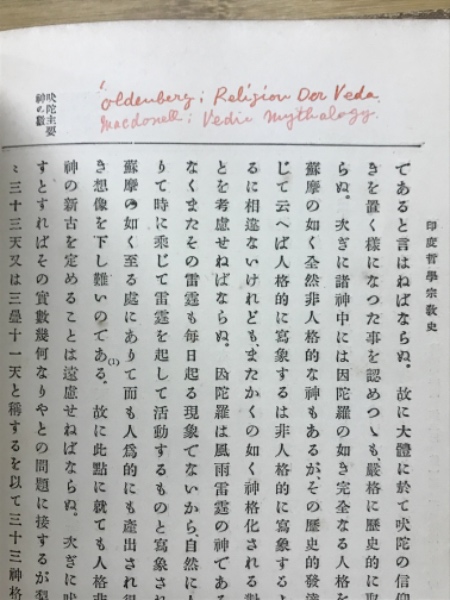 oldenberg; Religion Der Veda.
Macdonell; Vedic Mythology.
吠陀主要
神の數
印度哲學宗敎史
であると言はねばならぬ。故に大體に於て吠陀の信仰
きを置く樣になつた事を認めつゝも、嚴格に歷史的に取
らぬ。次ぎに諸神中には因陀羅の如き完全なる人格を
蘇摩の如く全然非人格的な神もあるが、その歷史的發達
じて云へば人格的に寫象するは非人格的に寫象するよ
るに相違ないけれども、またかくの如く神格化される對
とを考慮せねばならぬ。因陀羅は風雨雷霆の神である
なくまたその雷霆も每日起る現象でないから、自然に人
りて時に乘じて雷霆を起して活動するものと寫象され
蘇摩の如く至る處にありて而も人爲的にも產出され得
き想像を下し難いのである。(1)故に此點に就ても人格非
神の新古を定めることは遠慮せねばならぬ。次ぎに吠
すとすればその實數幾何なりやとの問題に接するが梨
ミ三十三天又は三疊十一天と稱するを以て三十三神格